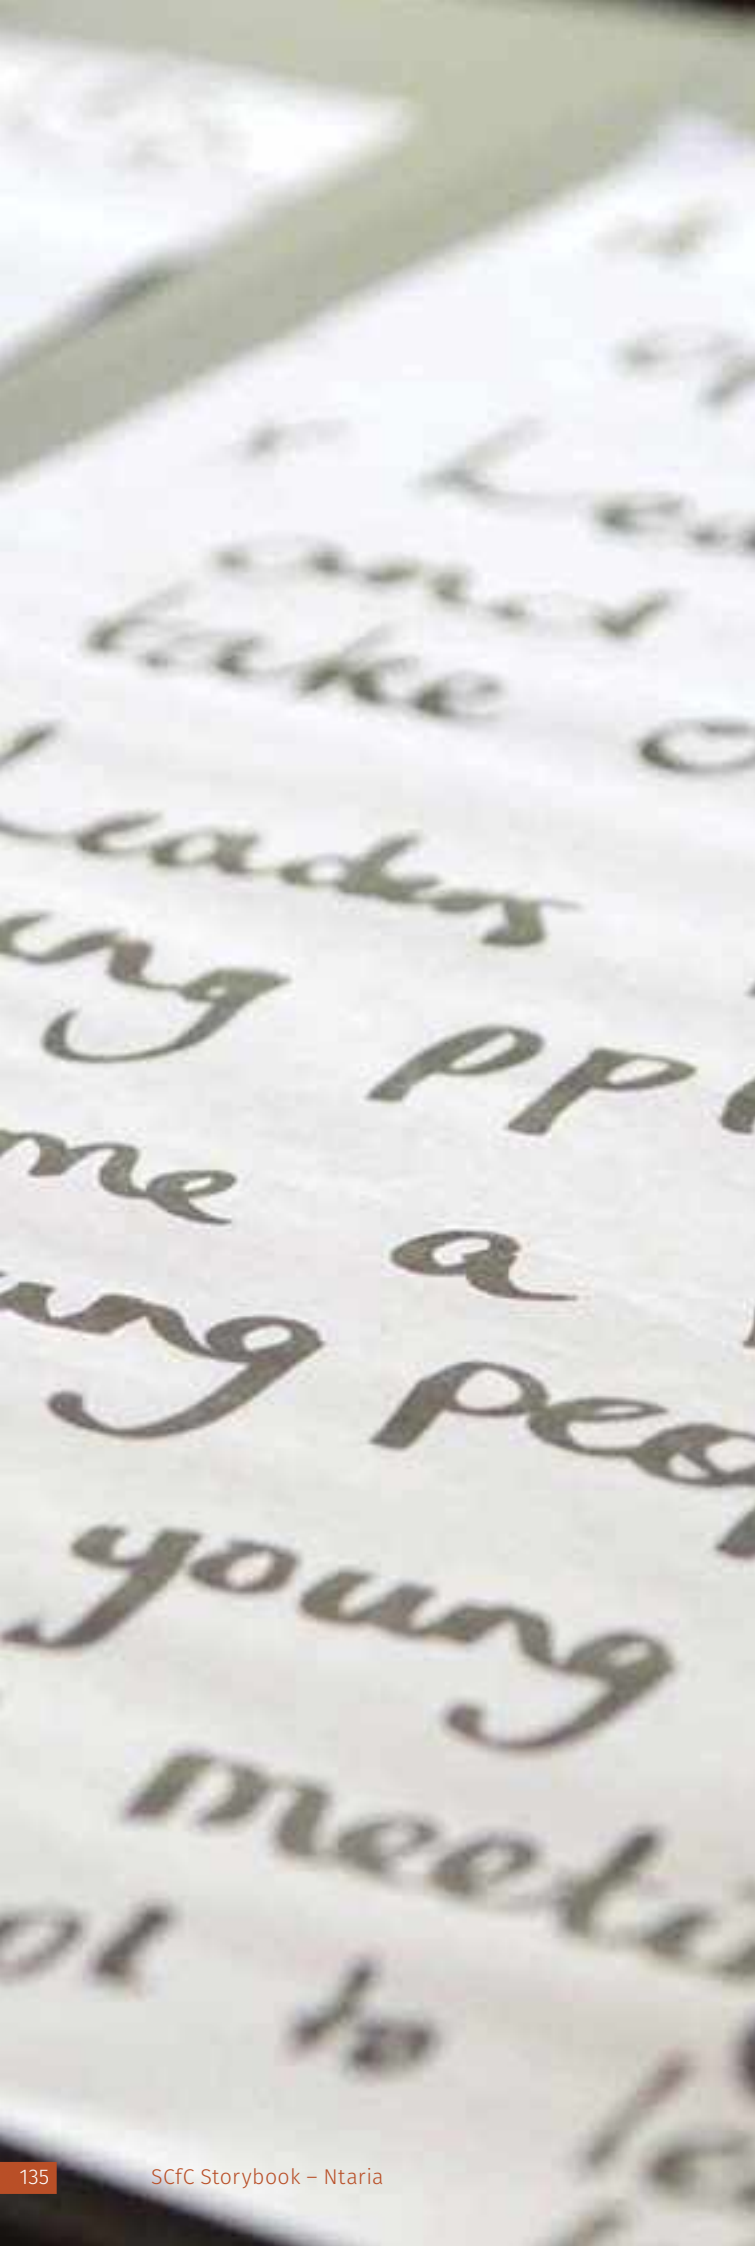 Lea
and
take
Leaders
ung ppl
me a
ung peop
young
meeti
ot to
le
135 SCfC Storybook – Ntaria